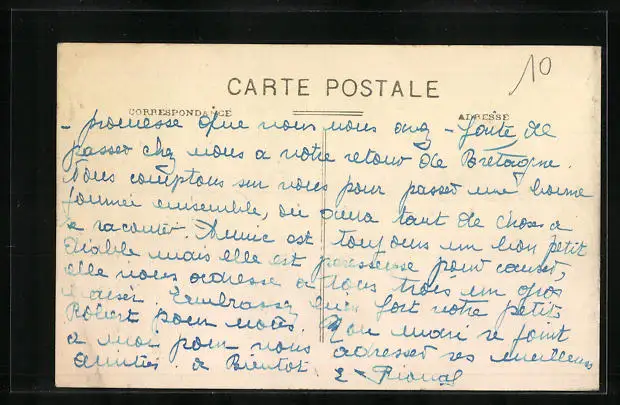 10
CARTE POSTALE
CORRESPONDANCE
ADRESSE
- promesse que vous nous avez - faite de
passer chez nous a votre retour de Bretagne.
Nous comptons sur vous pour passer une bonne
journée ensemble, on aura tant de choses a
se raconter. est toujours un bon petit
diable mais elle est paresseuse pour causer,
elle vous adresse a tous trois un gros
baiser. Embrassez bien fort votre petit
Robert pour nous. Mon mari se joint
a moi pour vous adresser ses meilleures
amitiés. a Bientot